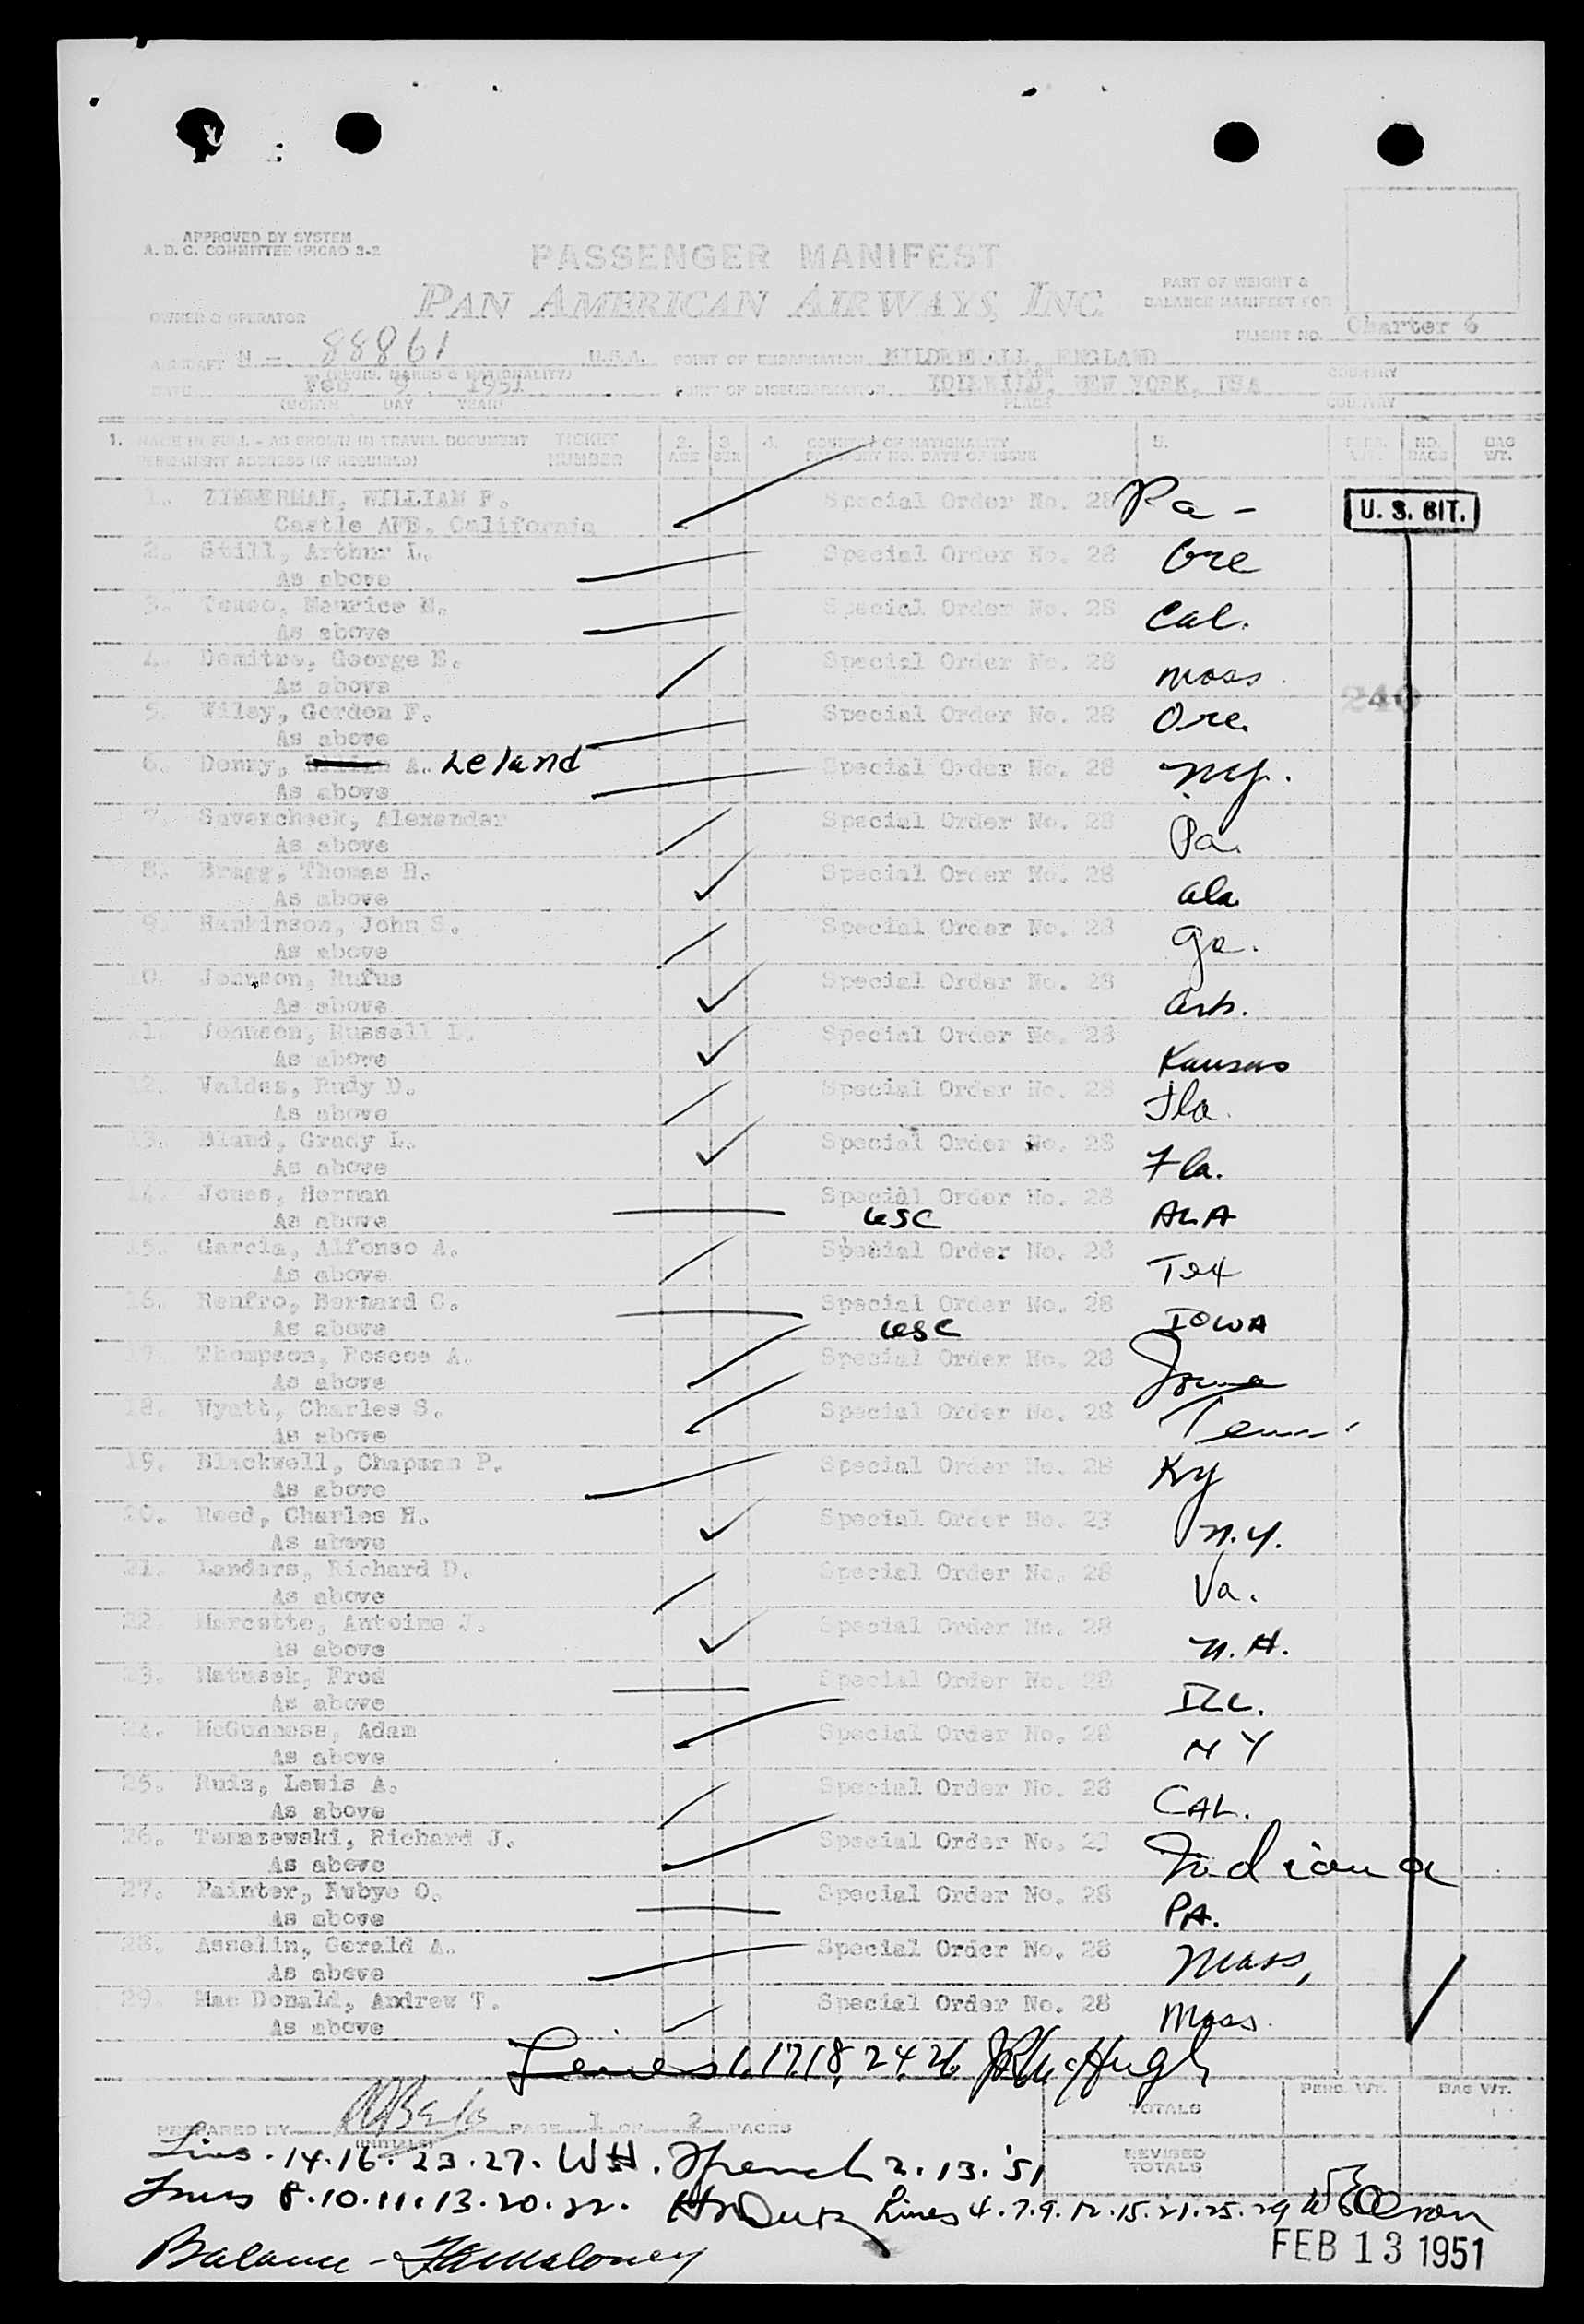 APPROVED BY SYSTEM
A. D. C. COMMITTEE (PICAO 3-2
PASSENGER MANIFEST
PAN AMERICAN AIRWAYS, INC.
PART OF WEIGHT &
BALANCE MANIFEST FOR
OWNER & OPERATOR
FLIGHT NO. Charter 6
AIRCRAFT N - 88861 U.S.A. POINT OF EMBARKATION MILDENHALL, ENGLAND
(REGIS. MARKS & NATIONALITY) PLACE COUNTRY
DATE Feb 9, 1951 POINT OF DISEMBARKATION IDLEWILD, NEW YORK, USA
(MONTH DAY YEAR) PLACE COUNTRY
1. NAME IN FULL - AS SHOWN IN TRAVEL DOCUMENT TICKET 2. 3. 4. COUNTRY OF NATIONALITY 5. PERS. NO. BAG
PERMANENT ADDRESS (IF REQUIRED) NUMBER AGE SEX PASSPORT NO. DATE OF ISSUE WT. BAGS WT.
1. ZIMMERMAN, WILLIAM F. Special Order No. 28 Pa - U. S. CIT.
Castle AFB, California
2. Still, Arthur L. Special Order No. 28 Ore
As above
3. Maurice M. Special Order No. 28 Cal.
As above
4. George E. Special Order No. 28 Mass.
As above 240
5. Wiley, Gordon F. Special Order No. 28 Ore.
As above
6. Denny, A. Leland Special Order No. 28 NY.
As above
7. Savercheck, Alexander Special Order No. 28 Pa.
As above
8. Bragg, Thomas H. Special Order No. 28 Ala
As above
9. Hankinson, John S. Special Order No. 28 Ga.
As above
10. Johnson, Rufus Special Order No. 28 Ark.
As above
11. Johnson, Russell L. Special Order No. 28 Kansas
As above
12. Valdes, Rudy D. Special Order No. 28 Fla.
As above
13. Bland, Grady L. Special Order No. 28 Fla.
As above
14. Jones, Herman Special Order No. 28
As above USC ALA
15. Garcia, Alfonso A. Special Order No. 28 Tex
As above
16. Renfro, Bernard C. Special Order No. 28
As above USC IOWA
17. Thompson, Roscoe A. Special Order No. 28 Iowa
As above
18. Wyatt, Charles S. Special Order No. 28 Tenn.
As above
19. Blackwell, Chapman P. Special Order No. 28 Ky
As above
20. Reed, Charles H. Special Order No. 28 N.Y.
As above
21. Landers, Richard D. Special Order No. 28 Va.
As above
22. Marcotte, Antoine J. Special Order No. 28 N.H.
As above
23. Matusek, Fred Special Order No. 28 ILL.
As above
24. McGunness, Adam Special Order No. 28 NY
As above
25. Ruiz, Lewis A. Special Order No. 28 CAL.
As above
26. Tomaszewski, Richard J. Special Order No. 28 Indiana
As above
27. Painter, Rubye O. Special Order No. 28 PA.
As above
28. Asselin, Gerald A. Special Order No. 28 Mass,
As above
29. Mac Donald, Andrew T. Special Order No. 28 Mass.
As above
Lines 1, 17, 18, 24, 26 McHugh
PERS. WT. BAG WT.
TOTALS
PREPARED BY PAGE 1 OF 2 PAGES
(INITIALS)
REVISED
TOTALS
Lines . 14 . 16 . 23 . 27 . WH. French 2 . 13 . '51
Lines 8 . 10 . 11 . 13 . 20 . 22 . Lines 4 . 7 . 9 . 12 . 15 . 21 . 25 . 29
FEB 13 1951
Balance - Maloney